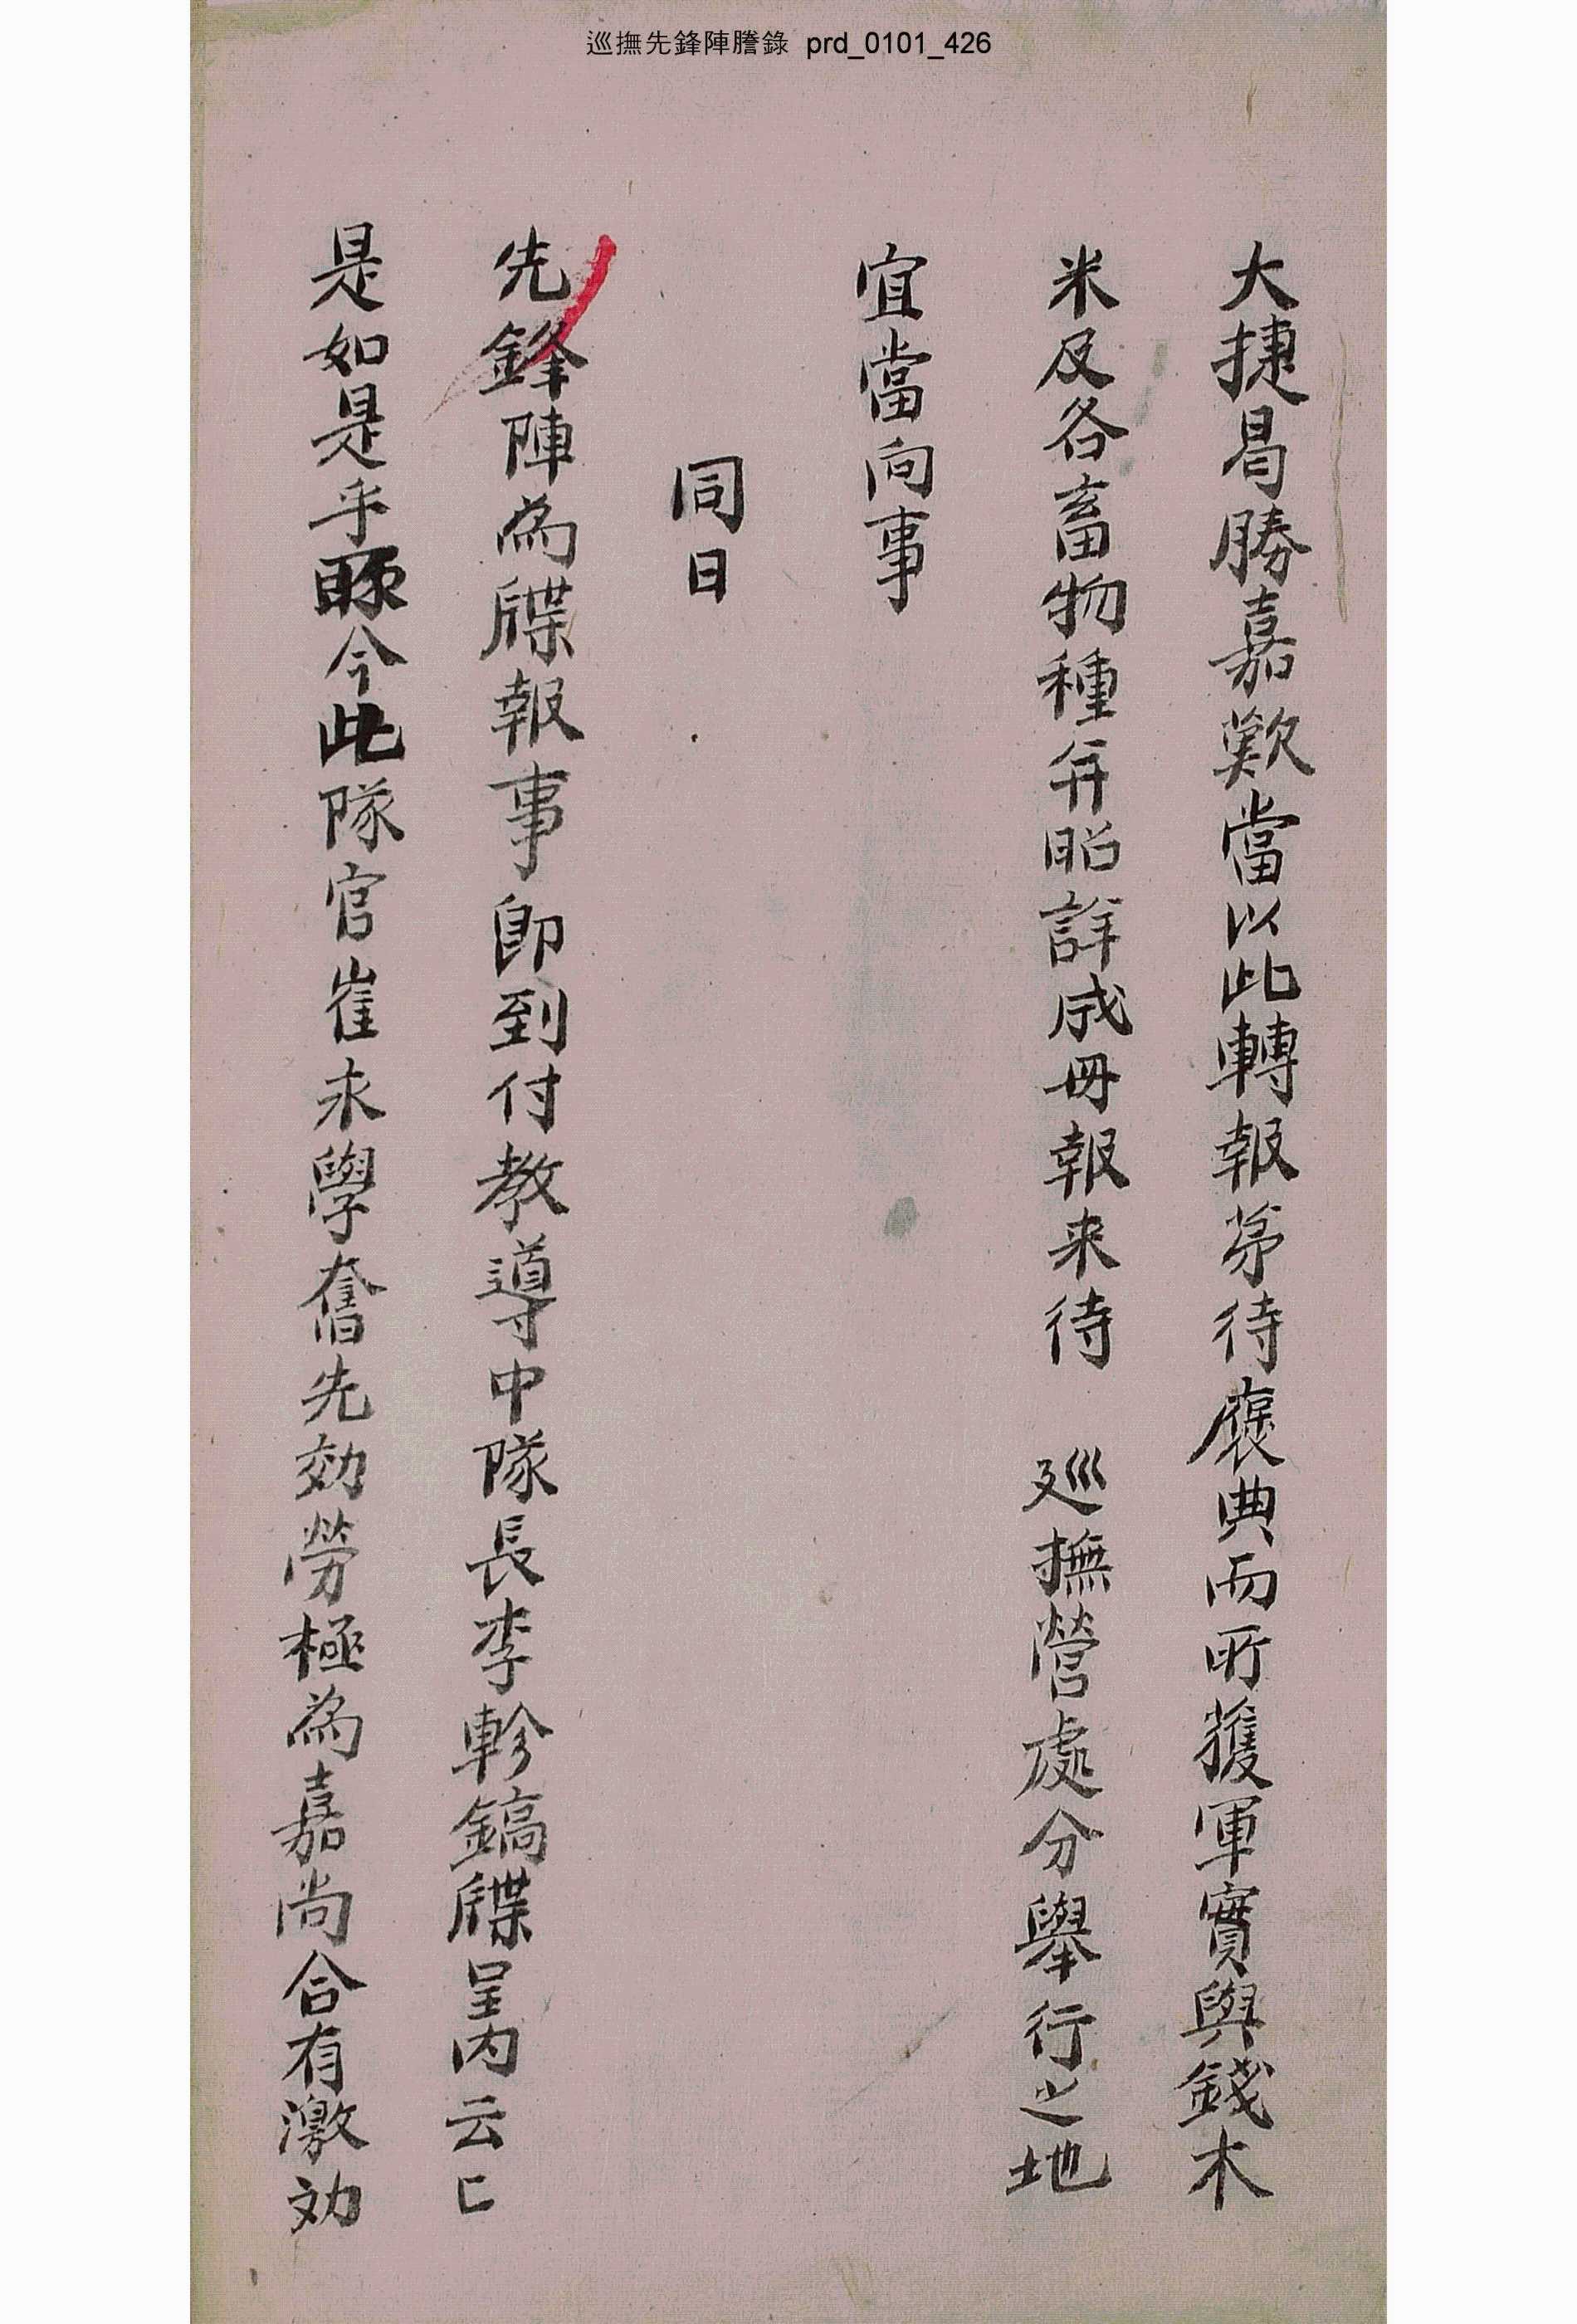 巡撫先鋒陣謄錄 prd_0101_426
大捷曷勝嘉歎當以此轉報苐待褒典而所獲軍實與錢木
米及各畜物種幷昭詳成冊報来待 廵撫營處分擧行之地
宜當向事
同日
先鋒陣為牒報事卽到付教導中隊長李軫鎬牒呈內云匸
是如是乎 今此隊官崔永學奮先効勞極為嘉尚合有激効